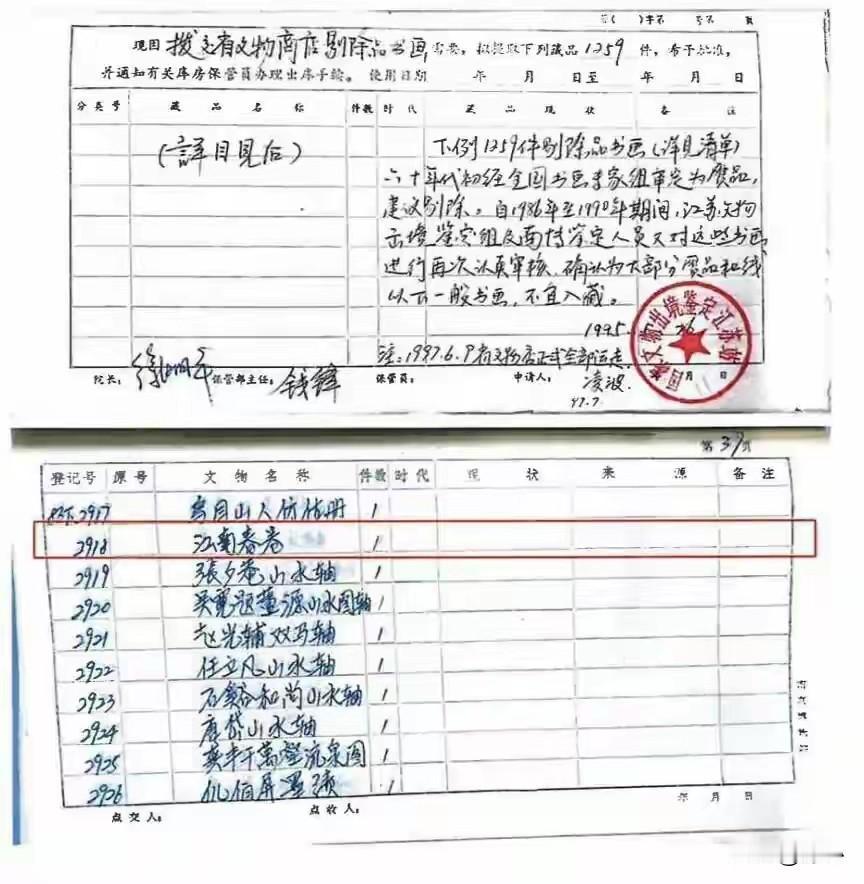 第( )字 号 第 页
现因 拨交省文物商店剔除品书画 需要,拟提取下列藏品 1259 件,希予批准,
并通知有关库房保管员办理出库手续。 使用日期 年 月 日至 年 月 日
分类号 藏品名称 件数 时代 藏品现状 备注
(詳目見后)
下例1259件剔除品书画(详见清单)
六十年代初经全国书画专家组审定为贋品,
建议剔除。自1986年至1990年期间,江苏文物
出境鉴定组及南博鉴定人员又对这些书画
进行再次认真审核,确认为大部分贋品和线
以下一般书画,不宜入藏。
1995.
注:1997.6.9省文物店正式全部运走
院长: 徐湖平 保管部主任: 钱锋 保管员: 申请人: 凌波 月 日
97.7
国家文物出境鉴定江苏站
第 37 页
登记号 原号 文物名称 件数 时代 现状 来源 备注
2917 乌目山人仿估册 1
2918 江南春卷 1
2919 張夕菴山水轴 1
2920 吴寬题董源山水图轴 1
2921 赵光辅双马轴 1
2922 任立凡山水轴 1
2923 石谿和尚山水轴 1
2924 唐岱山水轴 1
2925 奚丰千萬壑流泉图 1
2926 仇佰屏墨蹟 1
点交人: 点收人: 年 月 日